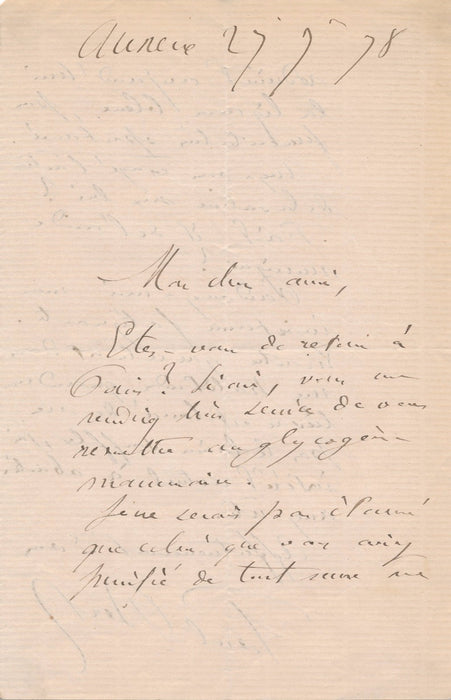 Auxerre 27 78
Mon cher ami,
Etes-vous de retour à
Paris? Si oui, vous me
rendriez bien service de vous
remettre au glycogène
mammaire.
Je ne serais pas étonné
que celui que vous aviez
purifié de tout sucre ne